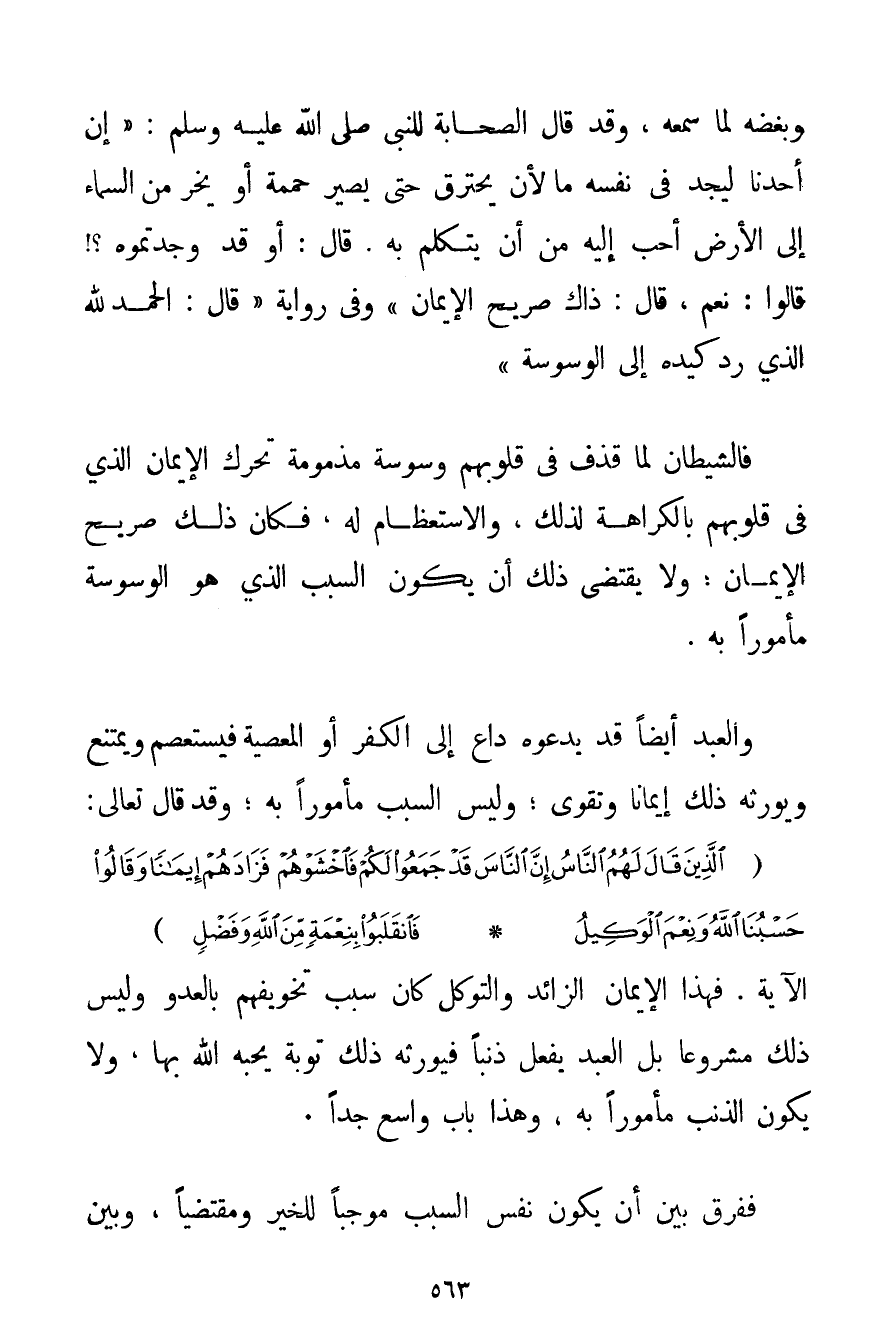 وبغضه لما سمعه ، وقد قال الصحابة للنبى صلى الله عليه وسلم : « إن
أحدنا ليجد فى نفسه ما لأن يحترق حتى يصير حممة أو يخر من السماء
إلى الأرض أحب إليه من أن يتكلم به . قال : أو قد وجدتموه ؟!
قالوا : نعم ، قال : ذاك صريح الإيمان » وفى رواية « قال : الحمد لله
الذي رد كيده إلى الوسوسة »
فالشيطان لما قذف فى قلوبهم وسوسة مذمومة تحرك الإيمان الذي
فى قلوبهم بالكراهة لذلك ، والاستعظام له ، فكان ذلك صريح
الإيمان ؛ ولا يقتضى ذلك أن يكون السبب الذي هو الوسوسة
مأموراً به .
والعبد أيضاً قد يدعوه داع إلى الكفر أو المعصية فيستعصم ويمتنع
ويورثه ذلك إيمانا وتقوى ؛ وليس السبب مأموراً به ؛ وقد قال تعالى :
( ٱلَّذِينَ قَالَ لَهُمُ ٱلنَّاسُ إِنَّ ٱلنَّاسَ قَدْ جَمَعُوا۟ لَكُمْ فَٱخْشَوْهُمْ فَزَادَهُمْ إِيمَٰنًا وَقَالُوا۟
حَسْبُنَا ٱللَّهُ وَنِعْمَ ٱلْوَكِيلُ * فَٱنقَلَبُوا۟ بِنِعْمَةٍ مِّنَ ٱللَّهِ وَفَضْلٍ )
الآية . فهذا الإيمان الزائد والتوكل كان سبب تخويفهم بالعدو وليس
ذلك مشروعا بل العبد يفعل ذنباً فيورثه ذلك توبة يحبه الله بها ، ولا
يكون الذنب مأموراً به ، وهذا باب واسع جداً .
ففرق بين أن يكون نفس السبب موجباً للخير ومقتضياً ، وبين
٥٦٣